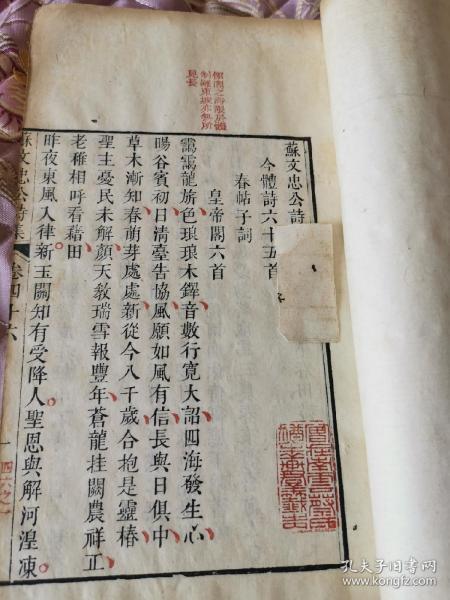 館閣之詩限於體
制雖東坡亦無所
見長
蘇文忠公詩
今體詩六十五首
春帖子詞
皇帝閣六首
靄靄龍旂色琅琅木鐸音數行寬大詔四海發生心
暘谷賓初日清臺告協風願如風有信長與日俱中
草木漸知春萌芽處處新從今八千歲合抱是靈椿
聖主憂民未解顏天教瑞雪報豐年蒼龍挂闕農祥正
老稚相呼看藉田
昨夜東風入律新玉關知有受降人聖恩與解河湟凍
蘇文忠公詩集
卷四十六
一
四六之一
孔夫子旧书网